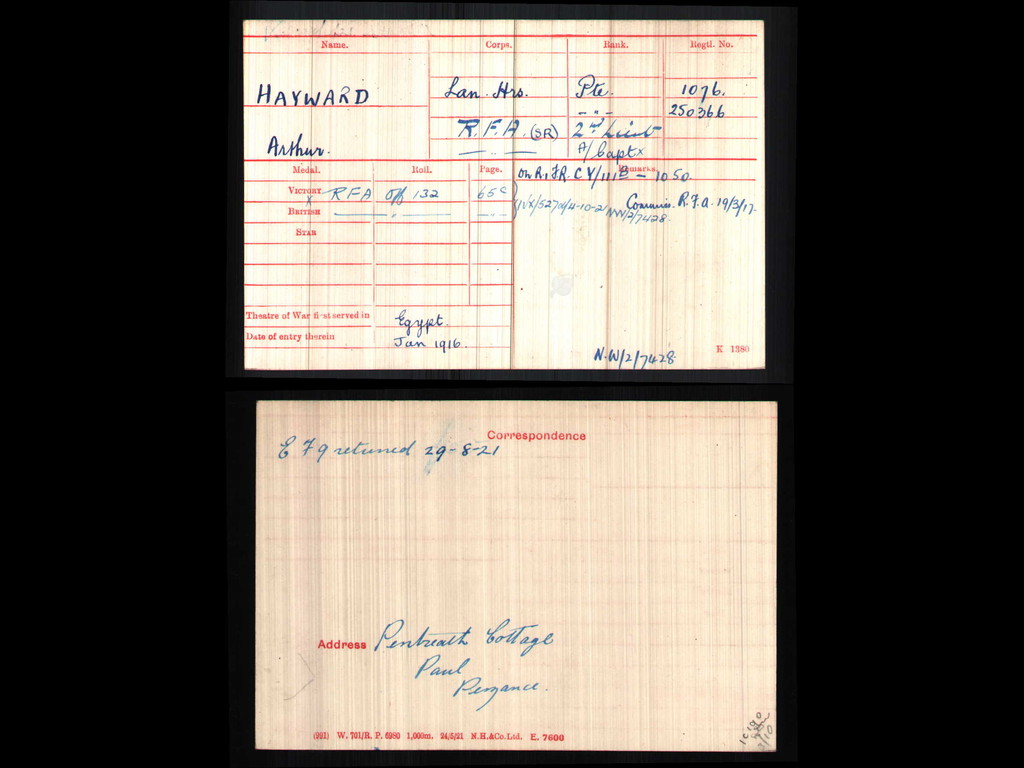 Name. Corps. Rank. Regtl. No.
HAYWARD Lan. Hrs. Pte. 1076.
- " - 250366
R.F.A. (SR) 2nd Lieut
Arthur. — " — A/Capt x
Medal. Roll. Page. Remarks.
On R. I.R. CY/111B - 1050.
VICTORY x RFA Off 132 65C
IVX/5270/4-10-21 NW/2/7428. Commis. R.F.A. 19/3/17.
BRITISH — " — - " -
STAR
Theatre of War first served in Egypt.
Date of entry therein Jan 1916.
N.W/2/7428.
K. 1380
Correspondence
E F 9 returned 29-8-21
Address Penbreath Cottage
Paul
Penzance.
(991) W. 701/R. P. 6980 1,000m. 24/5/21 N.H.&Co.Ltd. E. 7600